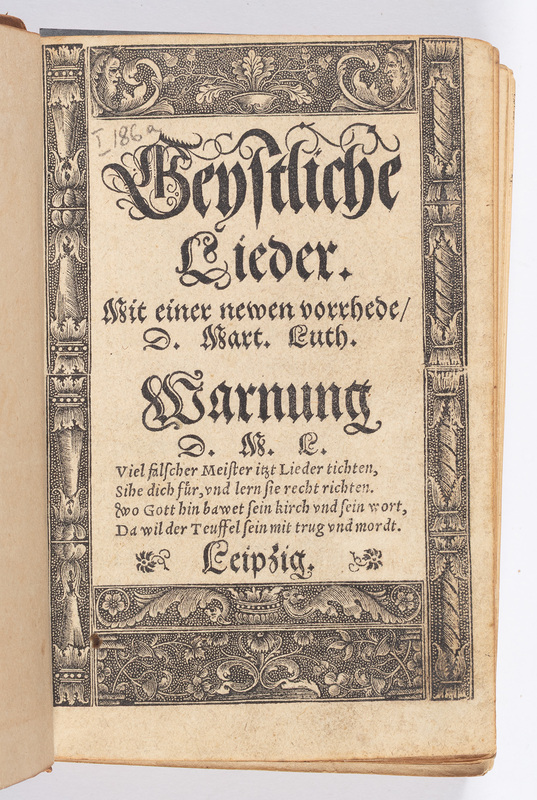 I 186a
Geystliche
Lieder.
Mit einer newen vorrhede/
D. Mart. Luth.
Warnung
D. M. L.
Viel falscher Meister itzt Lieder tichten,
Sihe dich für, vnd lern sie recht richten.
Wo Gott hin bawet sein kirch vnd sein wort,
Da wil der Teuffel sein mit trug vnd mordt.
Leipzig.